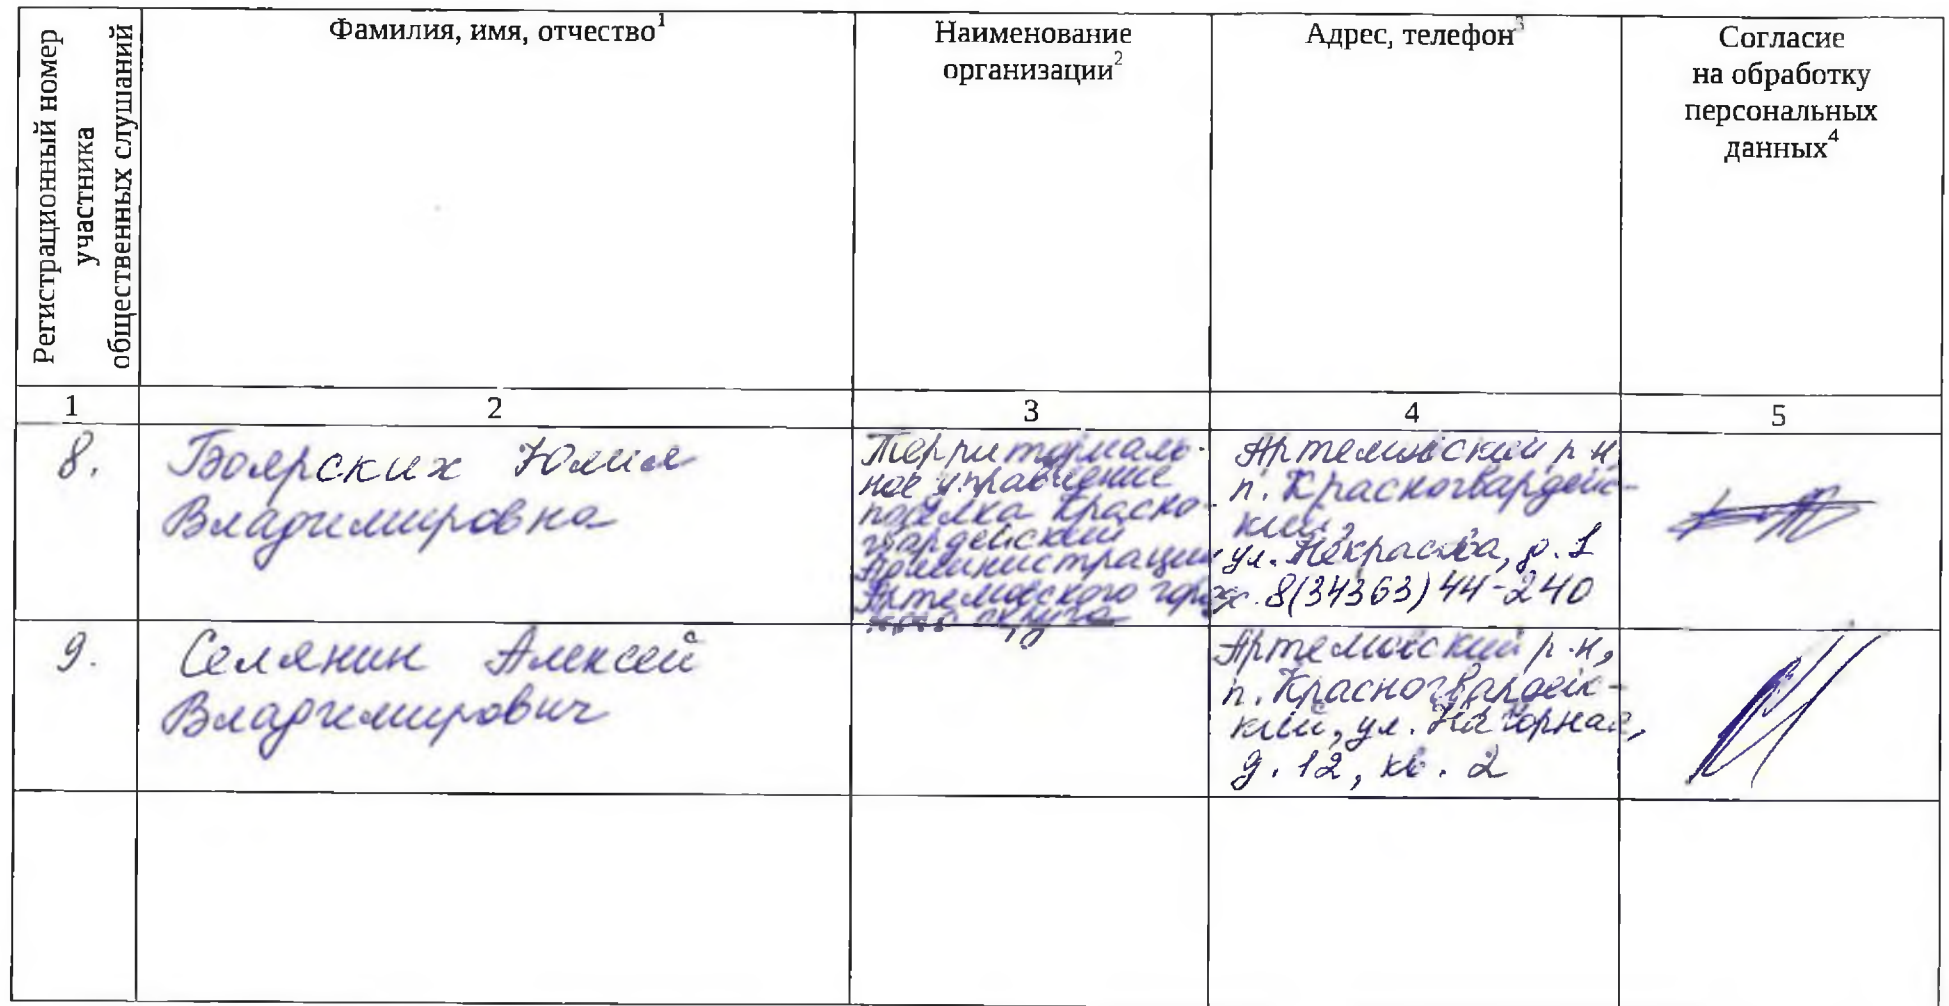 Регистрационный номер
участника
общественных слушаний
Фамилия, имя, отчество¹
Наименование
организации²
Адрес, телефон³
Согласие
на обработку
персональных
данных⁴
1
2
3
4
5
8.
Боярских Юлия
Владимировна
Территориаль-
ное управление
посёлка Красно-
гвардейский
Администрации
Артемовского город-
ского округа
Артемовский р-н
п. Красногвардейс-
кий,
ул. Некрасова, д. 1
т. 8(34363)44-240
9.
Селянин Алексей
Владимирович
Артемовский р-н,
п. Красногвардейс-
кий, ул. Нагорная,
д. 12, кв. 2